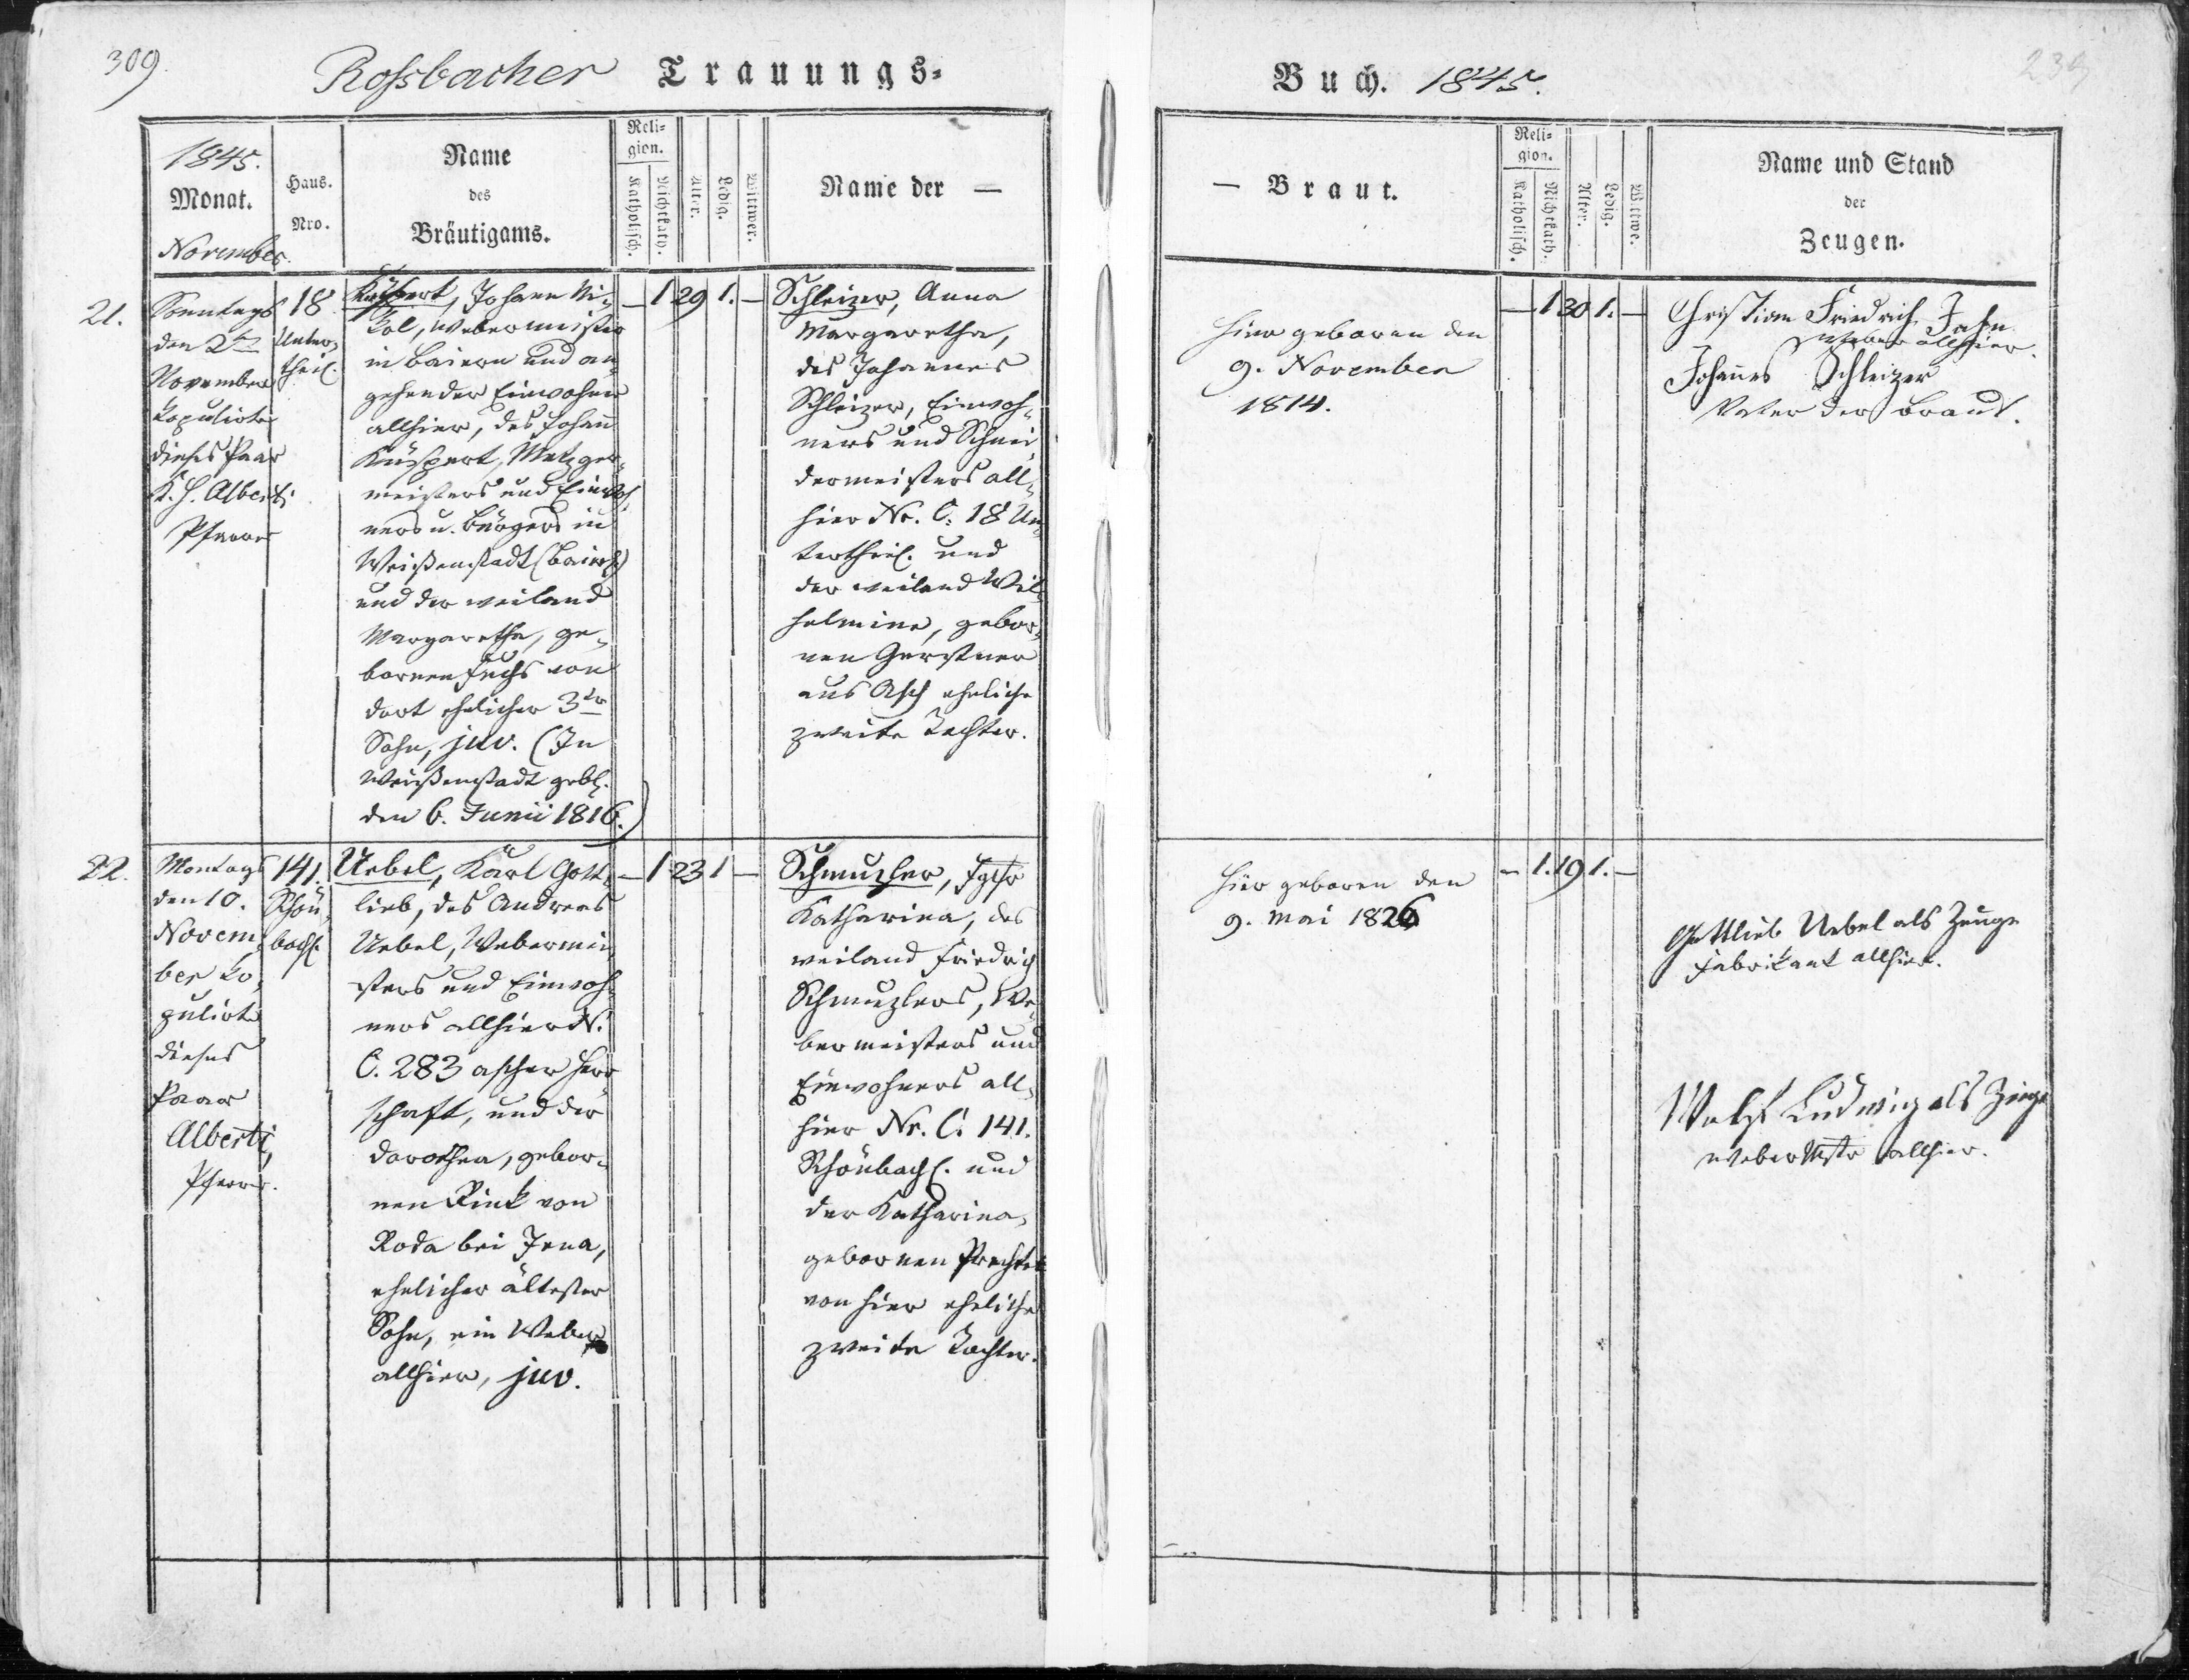 309.
Roſsbacher Trauungs-
1845.
Monat.
November.
Haus.
Nro.
Name
des
Bräutigams.
Reli-
gion.
Katholisch.
Nichtkath.
Alter.
Ledig.
Wittwer.
Name der —
21.
Sonntags
den 2ten
November
kopulirte
dieses Paar
K. H. Alberti
Pfarrer
18
Unter-
theil.
Küspert, Johann Ni-
kol, Webermeister
in Baiern und an-
gehender Einwohner
allhier, des Johann
Küspert, Metzger-
meisters und Einwoh-
ners u. Bürgers in
Weißenstadt (Baiern)
und der weiland
Margaretha, ge-
bornen Fuchs von
dort ehelicher 3ter
Sohn, juv. (In
Weißenstadt geb.
den 6. Junii 1816.)
— 1 29 1. —
Schleizer, Anna
Margaretha,
des Johannes
Schleizer, Einwoh-
ners und Schnei-
dermeisters all-
hier Nr. C. 18 Un-
tertheil. und
der weiland Wil-
helmine, gebor-
nen Gerstner
aus Asch eheliche
zweite Tochter.
22.
Montags
den 10.
Novem-
ber ko-
pulirte
dieses
Paar
Alberti,
Pfarrer.
141.
Schön-
bach.
Uebel, Karl Gott-
lieb, des Andreas
Uebel, Webermei-
sters und Einwoh-
ners allhier N.
C. 283 ascher Herr-
schaft, und der
Dorothea, gebor-
nen Rink von
Roda bei Jena,
ehelicher ältester
Sohn, ein Weber
allhier, juv.
— 1 23 1 —
Schmuzler, Igfr
Katharina, des
weiland Friedrich
Schmuzlers, We-
bermeisters und
Einwohners all-
hier Nr. C. 141.
Schönbach. und
der Katharina,
gebornen Prechtel
von hier eheliche
zweite Tochter.
Buch. 1845.
239
— Braut.
Reli-
gion.
Katholisch.
Nichtkath.
Alter.
Ledig.
Wittwe.
Name und Stand
der
Zeugen.
hier geboren den
9. November
1814.
— 1 30 1. —
Christian Friedrich Jahn
Weber allhier.
Johannes Schleizer
Vater der Braut.
hier geboren den
9. Mai 1826
— 1. 19 1. —
Gottlieb Uebel als Zeuge
Fabrikant allhier.
Wolf Ludwig als Zeuge
Weber Mstr allhier.